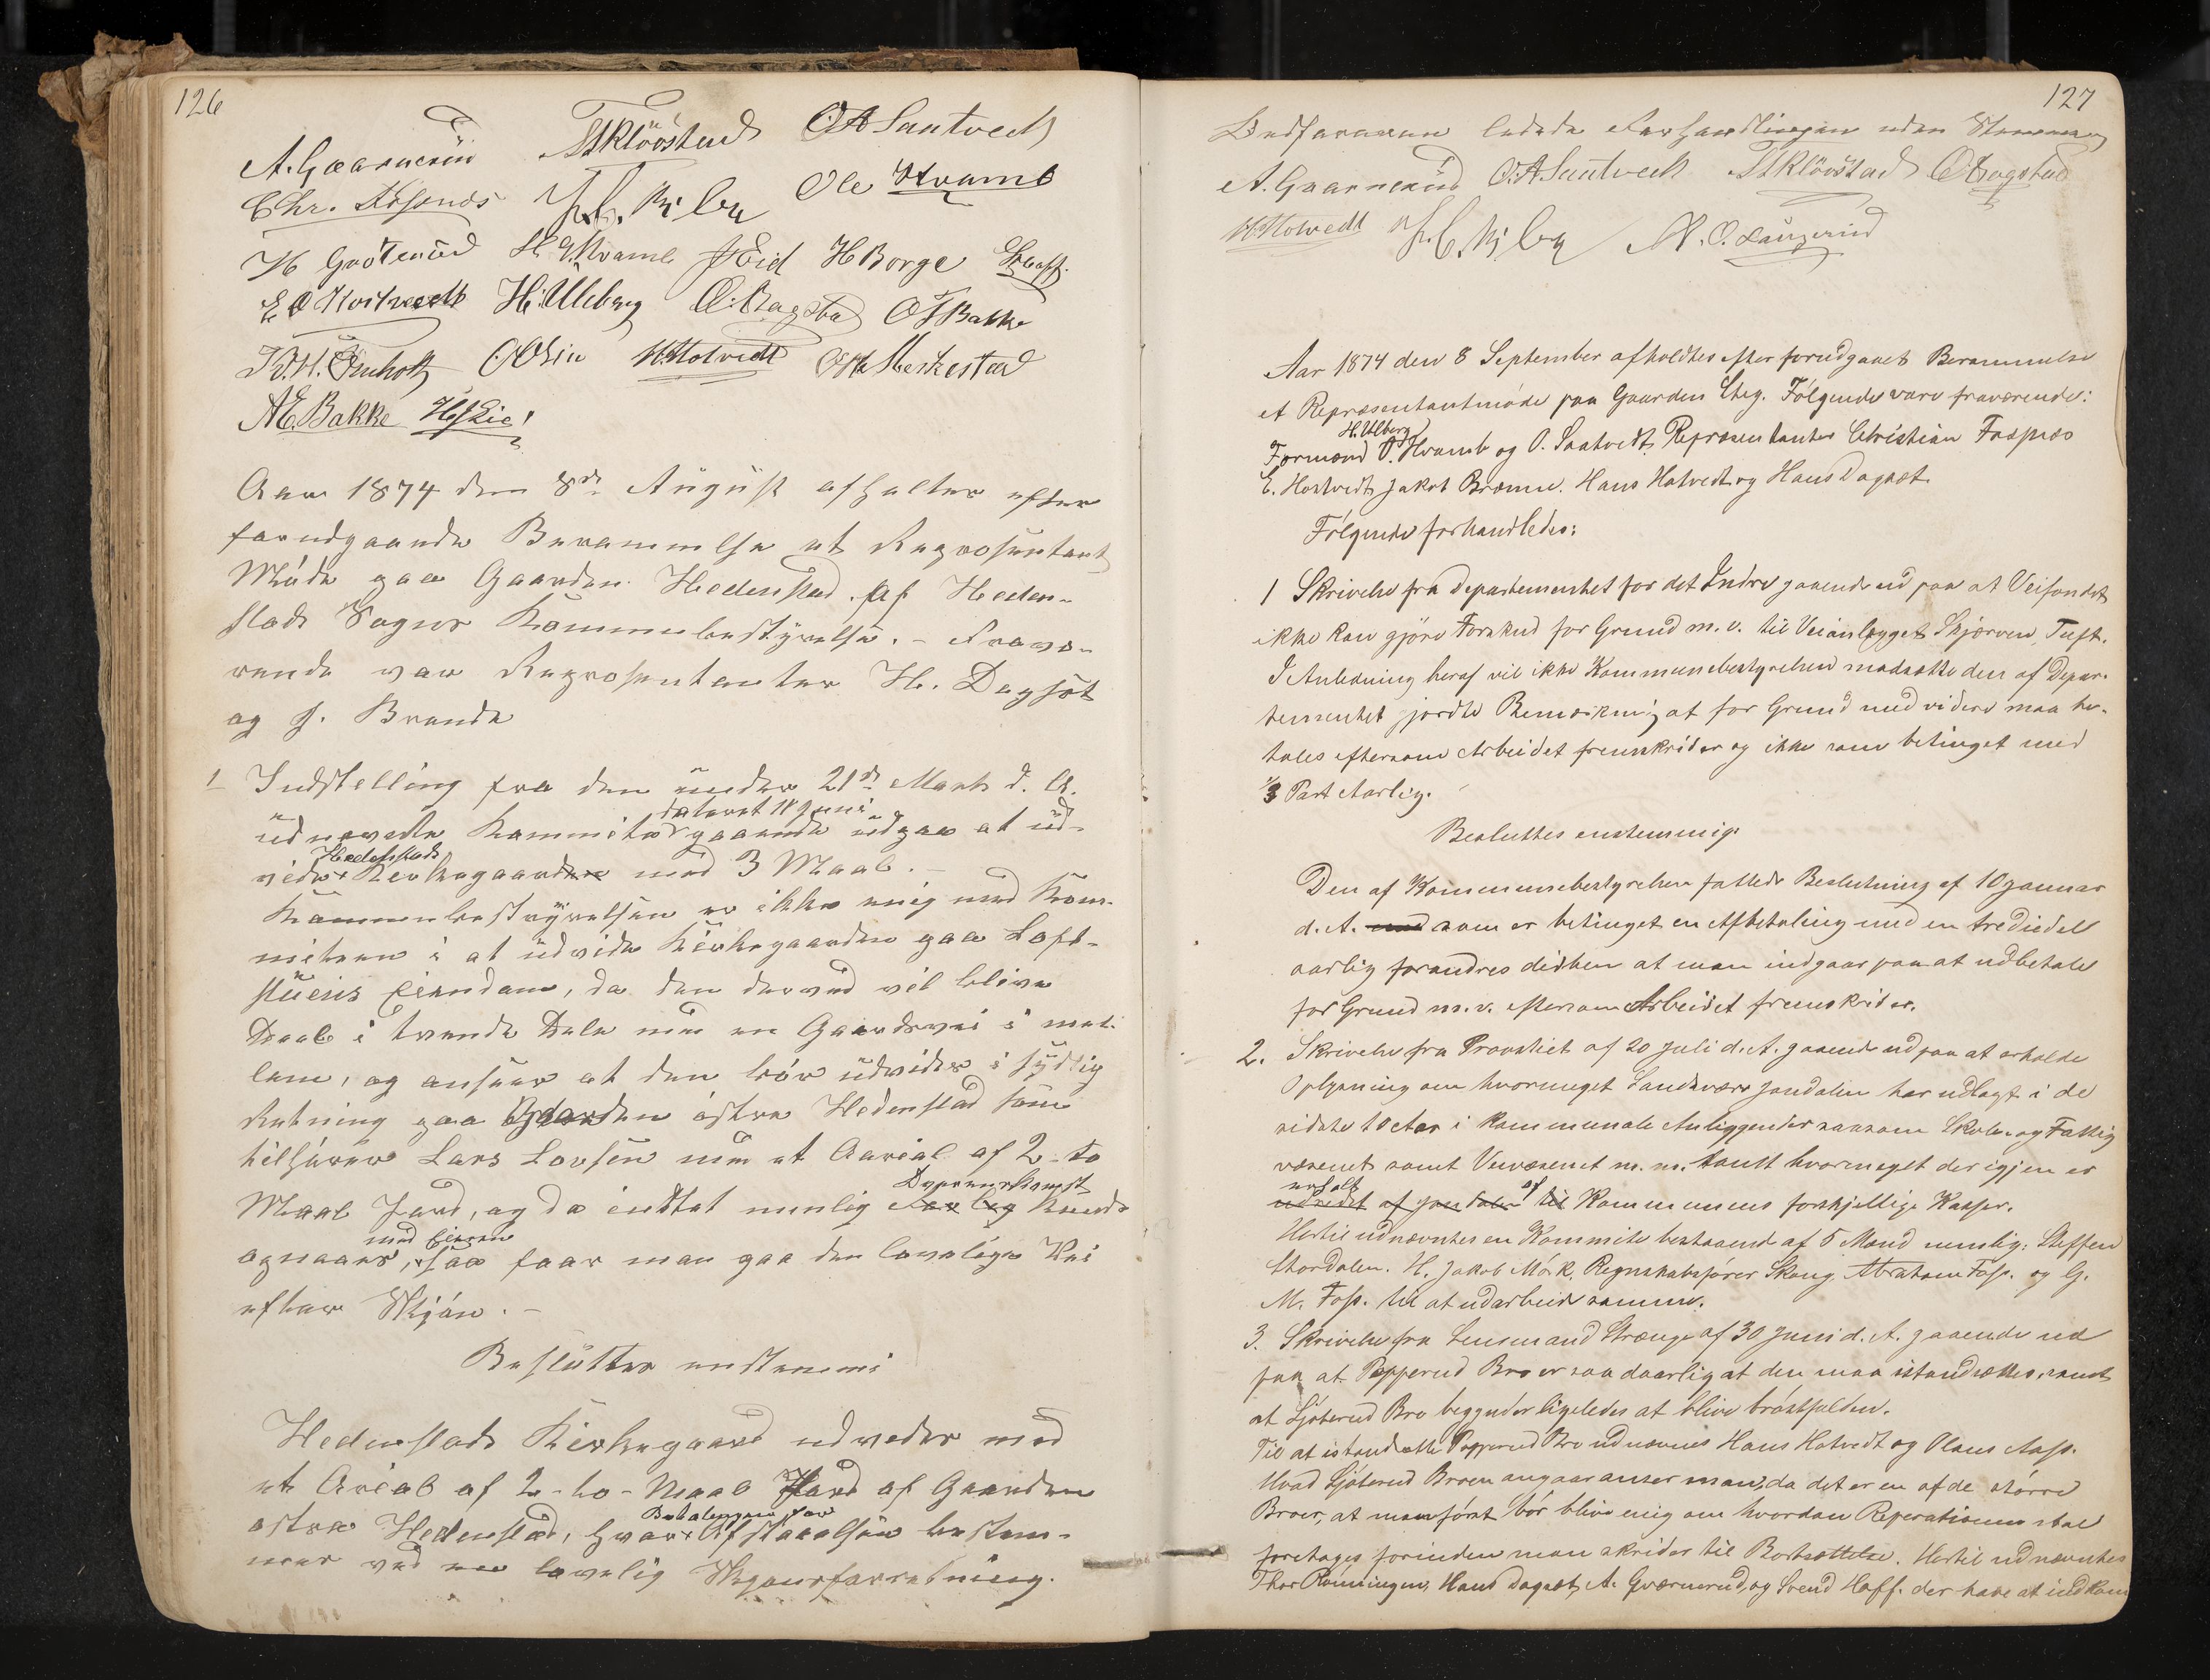 126
A. Gaarnerüd StKlööstad OASaatvedt
Chr. Fosnæs Ole Kvamb
H Grötterüd H. Kvamb JEid HBorge
E O Hostvedt H: Ulleberg O. Bagstad OTBakke
OOLiu H.Hotvedt Meshestad
AE.Bakke HJLie
Aar 1874 den 8de August afholtes efter
forudgaaende Berammelse et Representant
Möde paa Gaarden Hedenstad. Af Heden-
stads Sogns Kommunbestÿrelse. – Fravæ-
rende var Representanter H. Dagsöt
og J. Brænde
1 Indstelling fra den under 21de Marts d. A.
dateret 18 Juni
udnevnte Kommite gaaende ud paa at ud-
Hedenstads
vide Kirkegaarden med 3 Maal. –
Kommunbestÿrelsen er ikke enig med Kom-
miteen i at udvide Kirkegaarden paa Loft-
stüeris Eiendom, da den derved vil blive
Deelt i tvende Dele med en Gaardsvei i mel-
lem, og anseer at den bör udvides i sÿdlig
Retning paa Gaarden östre Hedenstad som
tilhörer Lars Larsen med et Aareal af 2 – to
Overenskomst
Maal Jord, og da intet nemlig Forlig kunde
med Eieren
opnaaes, saa faar man gaa den lovelige Vei
efter Skjön. –
Beslüttes enstemmi
Hedenstads Kirkegaard udvedes med
et Areal af 2 – to – Maal Jord af Gaarden
Betalingen for
östre Hedenstad, hvor Afstaaelsen bestem-
mes ved en lovelig Skjönsforretning.
127
Ordföreren ledede Forhandlingen uden Stemme
A. Gaarnerüd O.ASaatvedt StKlövstad OBagstad
H.Hotvedt N. O. Laugerüd
Aar 1874 den 8 September afholdtes efter forudgaaet Berammelse
et Repræsentantmöde paa Gaarden Steg. Fölgende vare fraværende:
H. Ulberg
Formænd O. Kvamb og O. Saatvedt, Repræsentanter Christian Fosnæs
E. Hostvedt, Jakob Brænne. Hans Hotvedt og Hans Dagsæt.
Fölgende forhandledes:
1 Skrivelse fra Departementet for det Indre gaaende ud paa at Veifondet
ikke kan gjöre Forskud for Grund m. v. til Veianlægget Skjörven, Tuft.
I Anledning heraf vil ikke Kommunebestyrelsen modsætte den af Depar-
tementet gjordte Bemærkning at for Grund med videre maa be-
tales eftersom Arbeidet fremskrider og ikke som betinget med
1/3 Part Aarlig.
Besluttes enstemmig:
Den af Kommunebestyrelsen fattede Beslutning af 10 Januar
d. A. med som er betinget en Afbetaling med en trediedel
aarlig forandres derhen at man indgaar paa at udbetale
for Grund m. v. eftersom Arbeidet fremskrider.
2. Skrivelse fra Provstiet af 20 Juli d. A. gaaende ud paa at erholde
Oplysning om hvormeget Sandsvær Jondalen har udlagt i de
sidste 10 Aar i kommunale Anliggender saasom Skole- og Fattig
væsenet samt Veivæsenet m. m. samt hvormeget der igjen er
af
udredet af Jondalen til Kommunens forskjellige Kasser.
Hertil udnævntes en Kommite bestaaende af 5 Mænd nemlig: Steffen
Stordalen. H. Jakob Mörk, Regnskabsförer Skoug. Abraham Foss. og G.
M. Foss. til at udarbeide samme.
3. Skrivelse fra Lensmand Strænge af 30 Juni d. A. gaaende ud
paa at Popperud Bro er saa daarlig at den maa istandsættes, samt
at Sjöterud Bro begynder ligeledes at blive bröstfalden.
Til at istandsætte Popperud Bro udnævnes Hans Hotvedt og Olaus Aass.
Hvad Sjöterud Broen angaar anser man, da det er en af de större
Broer, at man först bör blive enig om hvordan Reperationen skal
foretages forinden man skrider til Bortsættelse. Hertil udnævntes
Thor Rönningen, Hans Dagsæt, A. Gværnerud, og Svend Hoff. der have at indkom